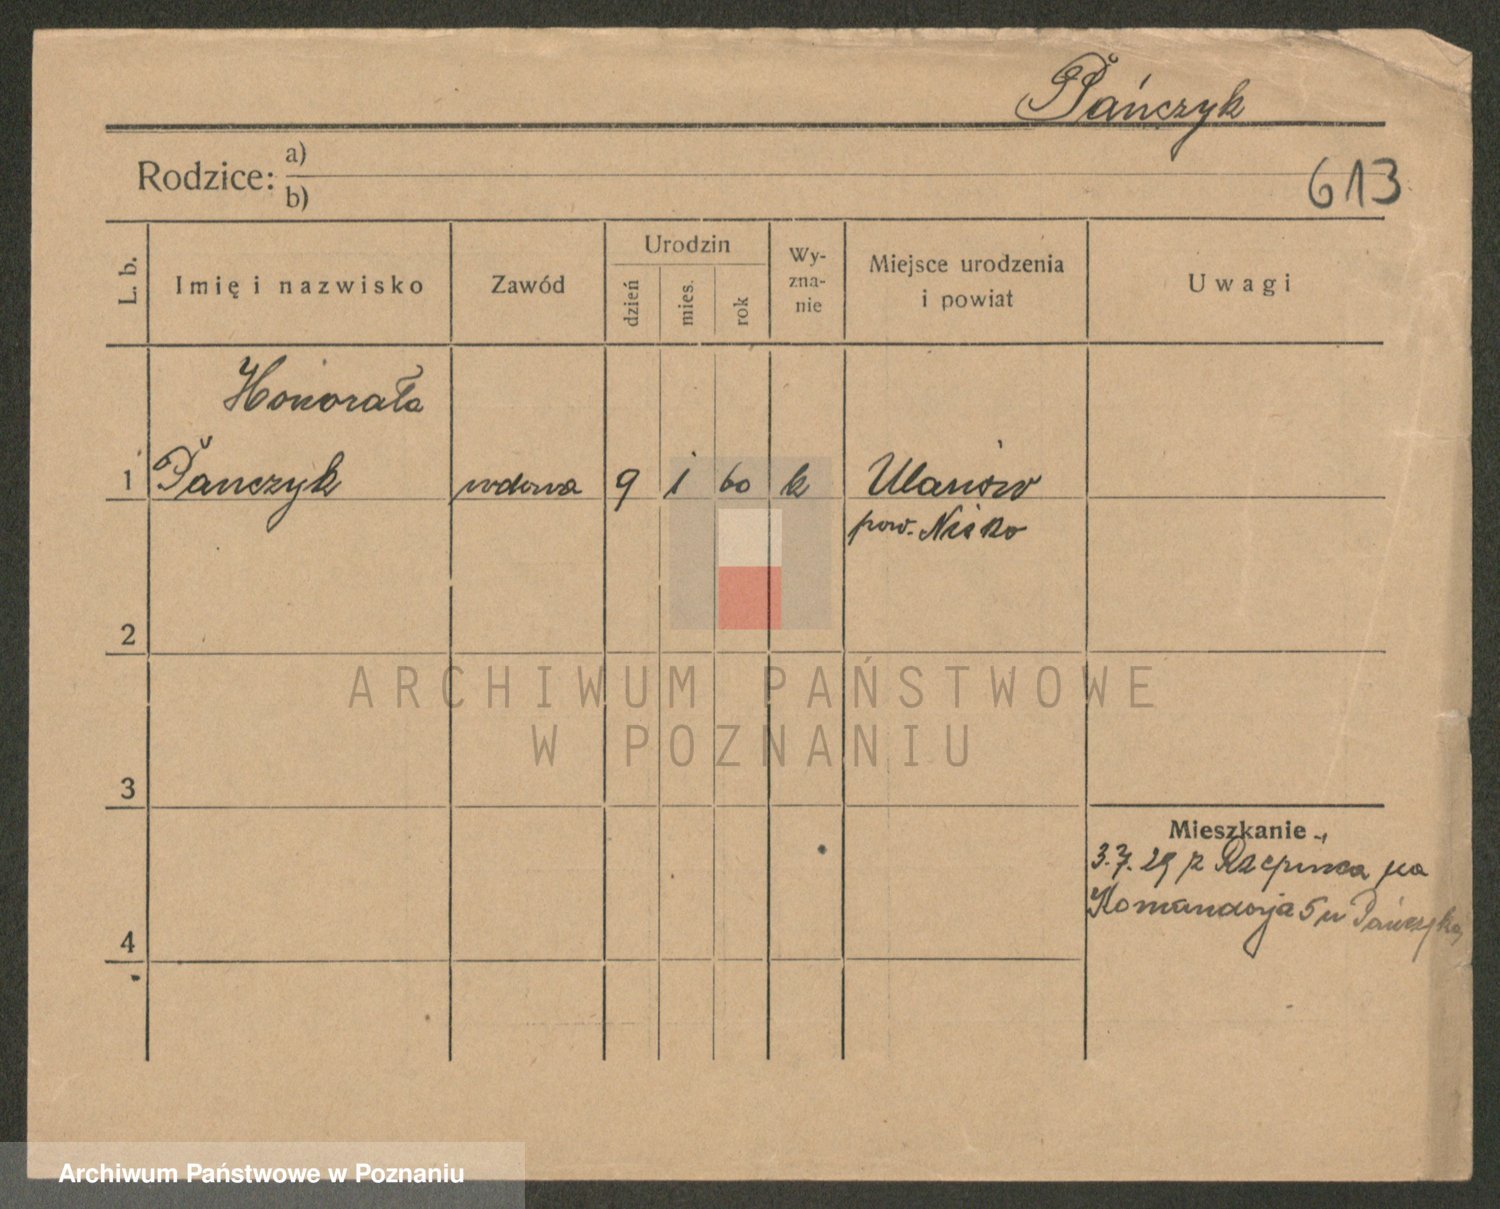 Pańczyk
Rodzice: a)
b)
613
L. b.
Imię i nazwisko
Zawód
Urodzin
dzień
mies.
rok
Wy-
zna-
nie
Miejsce urodzenia
i powiat
Uwagi
Honorata
1 Pańczyk wdowa 9 1 60 k Ulanów
pow. Nisko
2
ARCHIWUM PAŃSTWOWE
W POZNANIU
3
Mieszkanie
3.7.29 z Rzepinca na
Komandorja 5 u Pańczyka
4
Archiwum Państwowe w Poznaniu